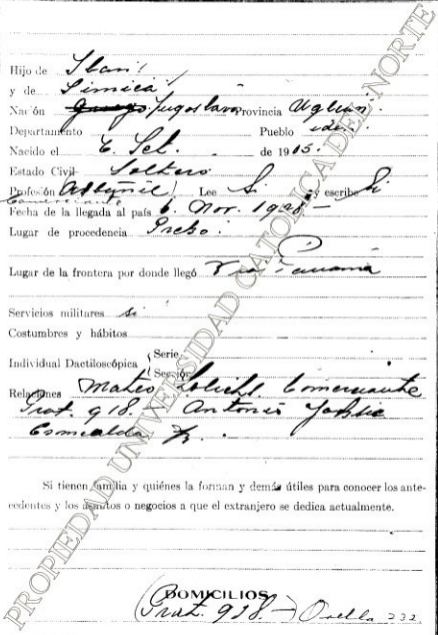 Hijo de Iban
y de Simica
Nación Griego Yugoslavo Provincia Uglian
Departamento Pueblo idem
Nacido el 6 Set. de 1915.
Estado Civil Soltero
Profesión Lee Si y escribe Si
Comerciante
Fecha de la llegada al país 6. Nov. 1928 -
Lugar de procedencia
Lugar de la frontera por donde llegó Via Panamá
Servicios militares si
Costumbres y hábitos
Individual Dactiloscópica { Serie
Sección
Relaciones Mateo Comerciante
Prat. 918. Antonio
Esmeralda
Si tienen familia y quiénes la forman y demás útiles para conocer los ante-
cedentes y los asuntos o negocios a que el extranjero se dedica actualmente.
DOMICILIOS
(Prat. 918. -) Orella 232
PROPIEDAD UNIVERSIDAD CATOLICA DEL NORTE